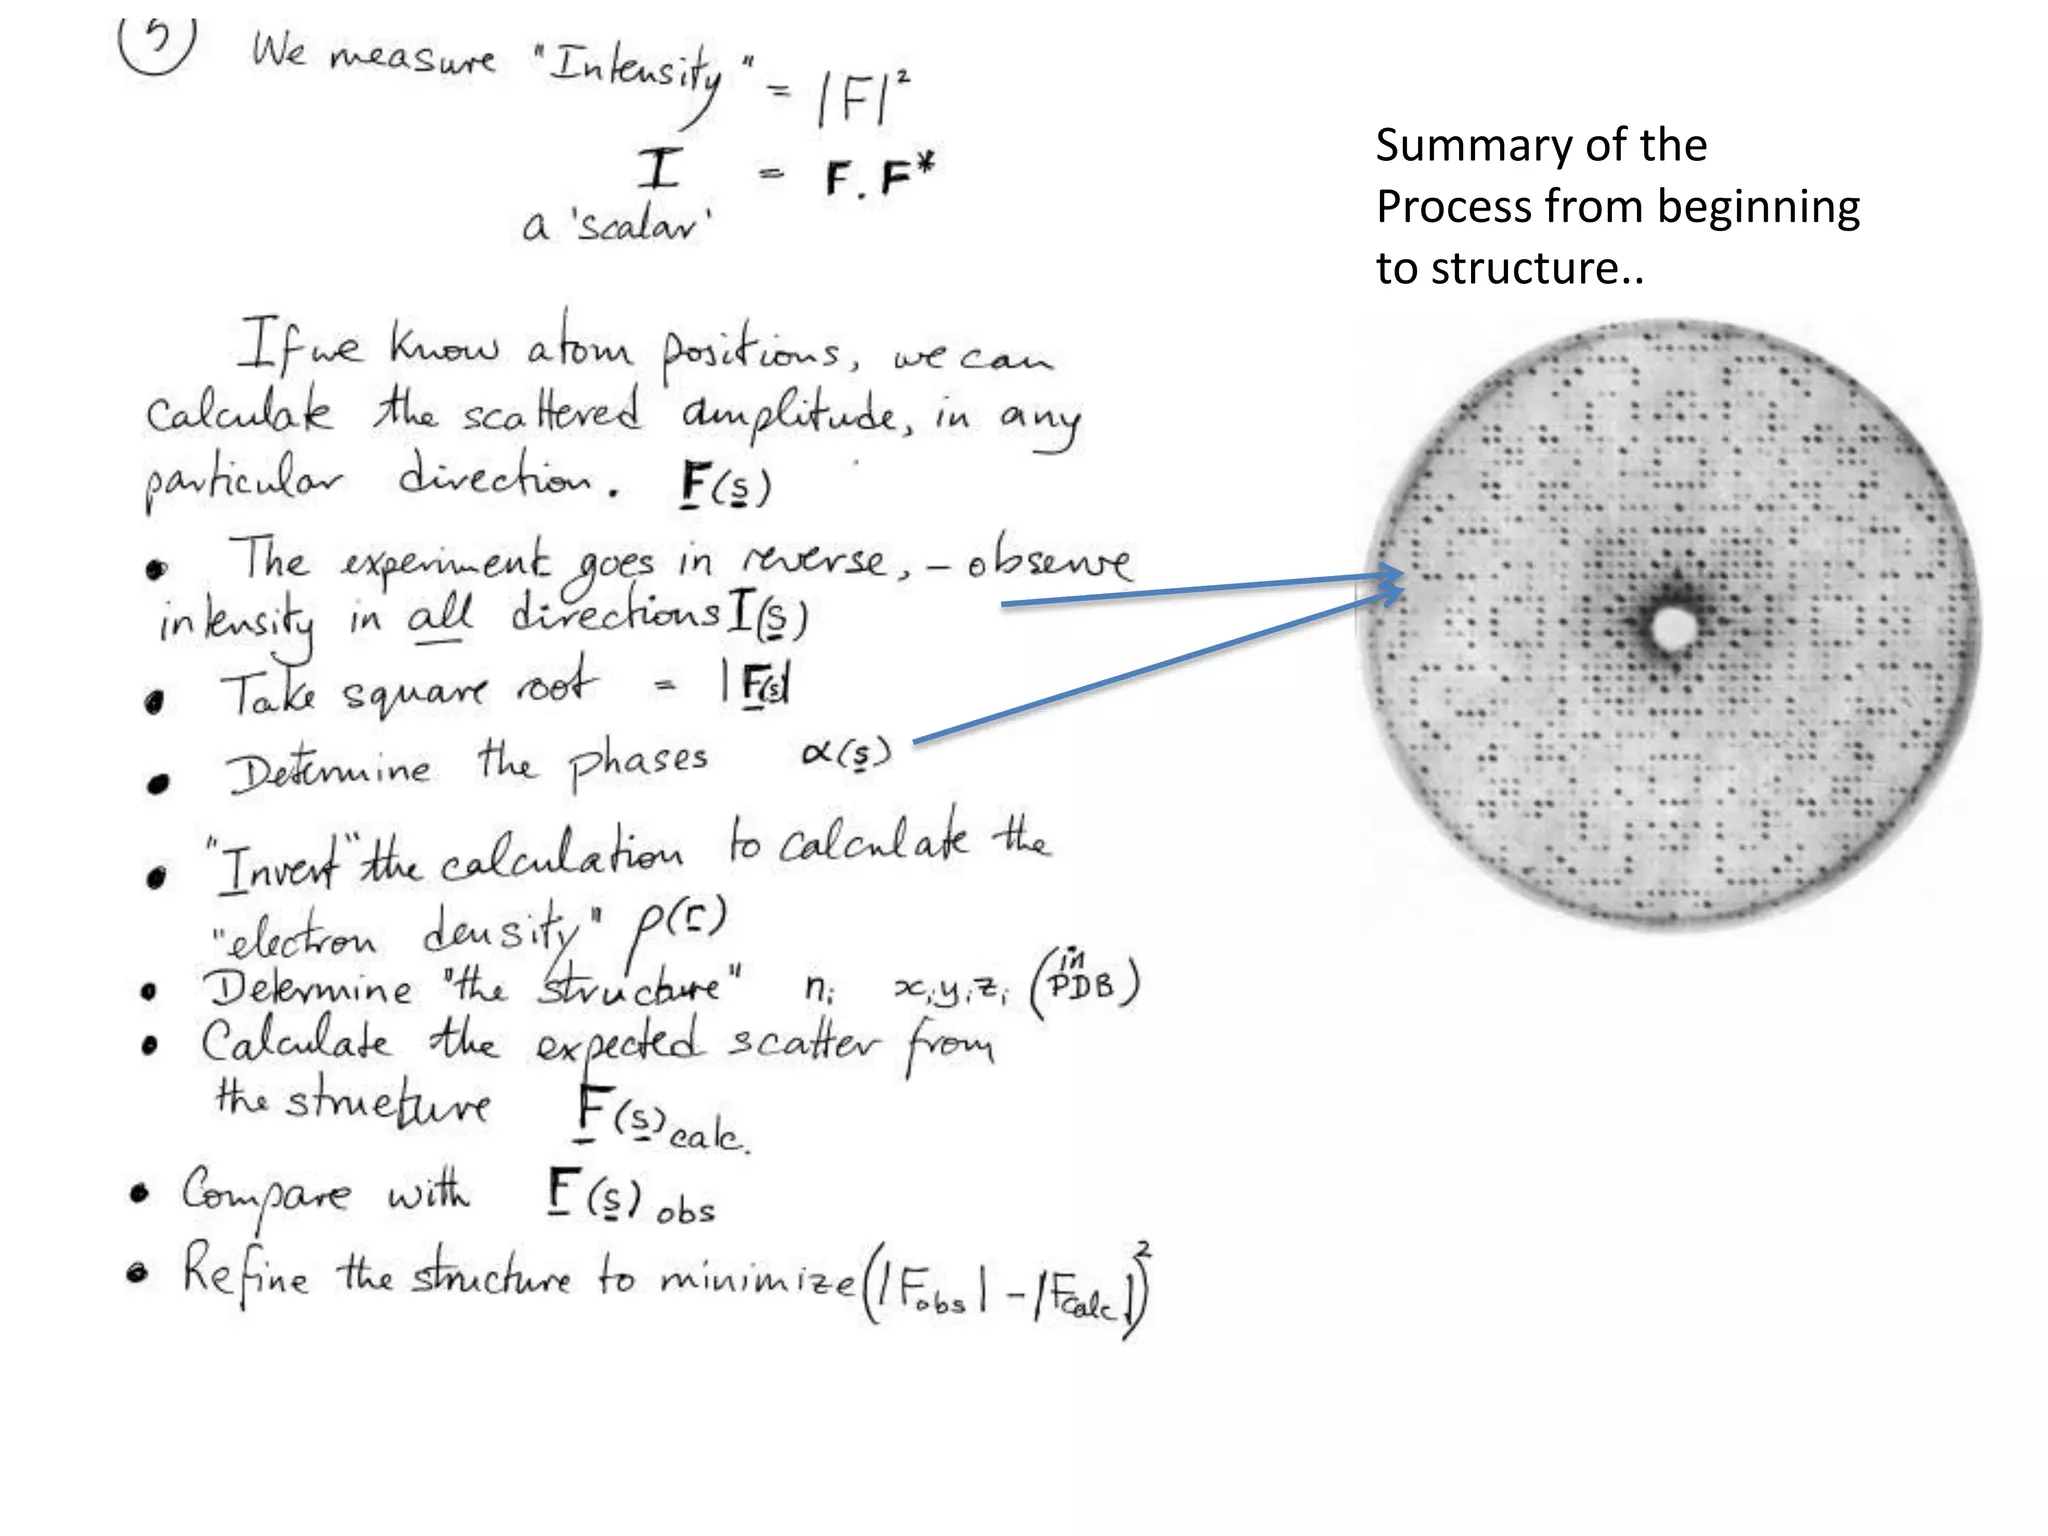 5 We measure "Intensity" = |F|²
I = F.F*
a 'scalar'
If we know atom positions, we can
calculate the scattered amplitude, in any
particular direction. F(s)
• The experiment goes in reverse, – observe
intensity in all directions I(s)
• Take square root = |F(s)|
• Determine the phases α(s)
• "Invert" the calculation to calculate the
"electron density" ρ(r)
• Determine "the structure" nᵢ xᵢ yᵢ zᵢ (in PDB)
• Calculate the expected scatter from
the structure F(s) calc.
• Compare with F(s) obs
• Refine the structure to minimize (|Fobs| – |Fcalc|)²
Summary of the
Process from beginning
to structure..